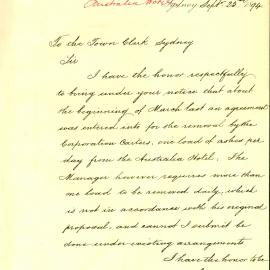 Australia Hotel
Sydney Sept. 25th /94
To the Town Clerk Sydney
Sir
I have the honor respectfully
to bring under your notice that about
the beginning of March last an agreement
was entered into for the removal by the
Corporation Carters, one load of ashes per
day from the Australia Hotel. The
Manager however requires more than
one load to be removed daily, which
is not in accordance with his original
proposal, and cannot I submit be
done under existing arrangements
I have the honor to be